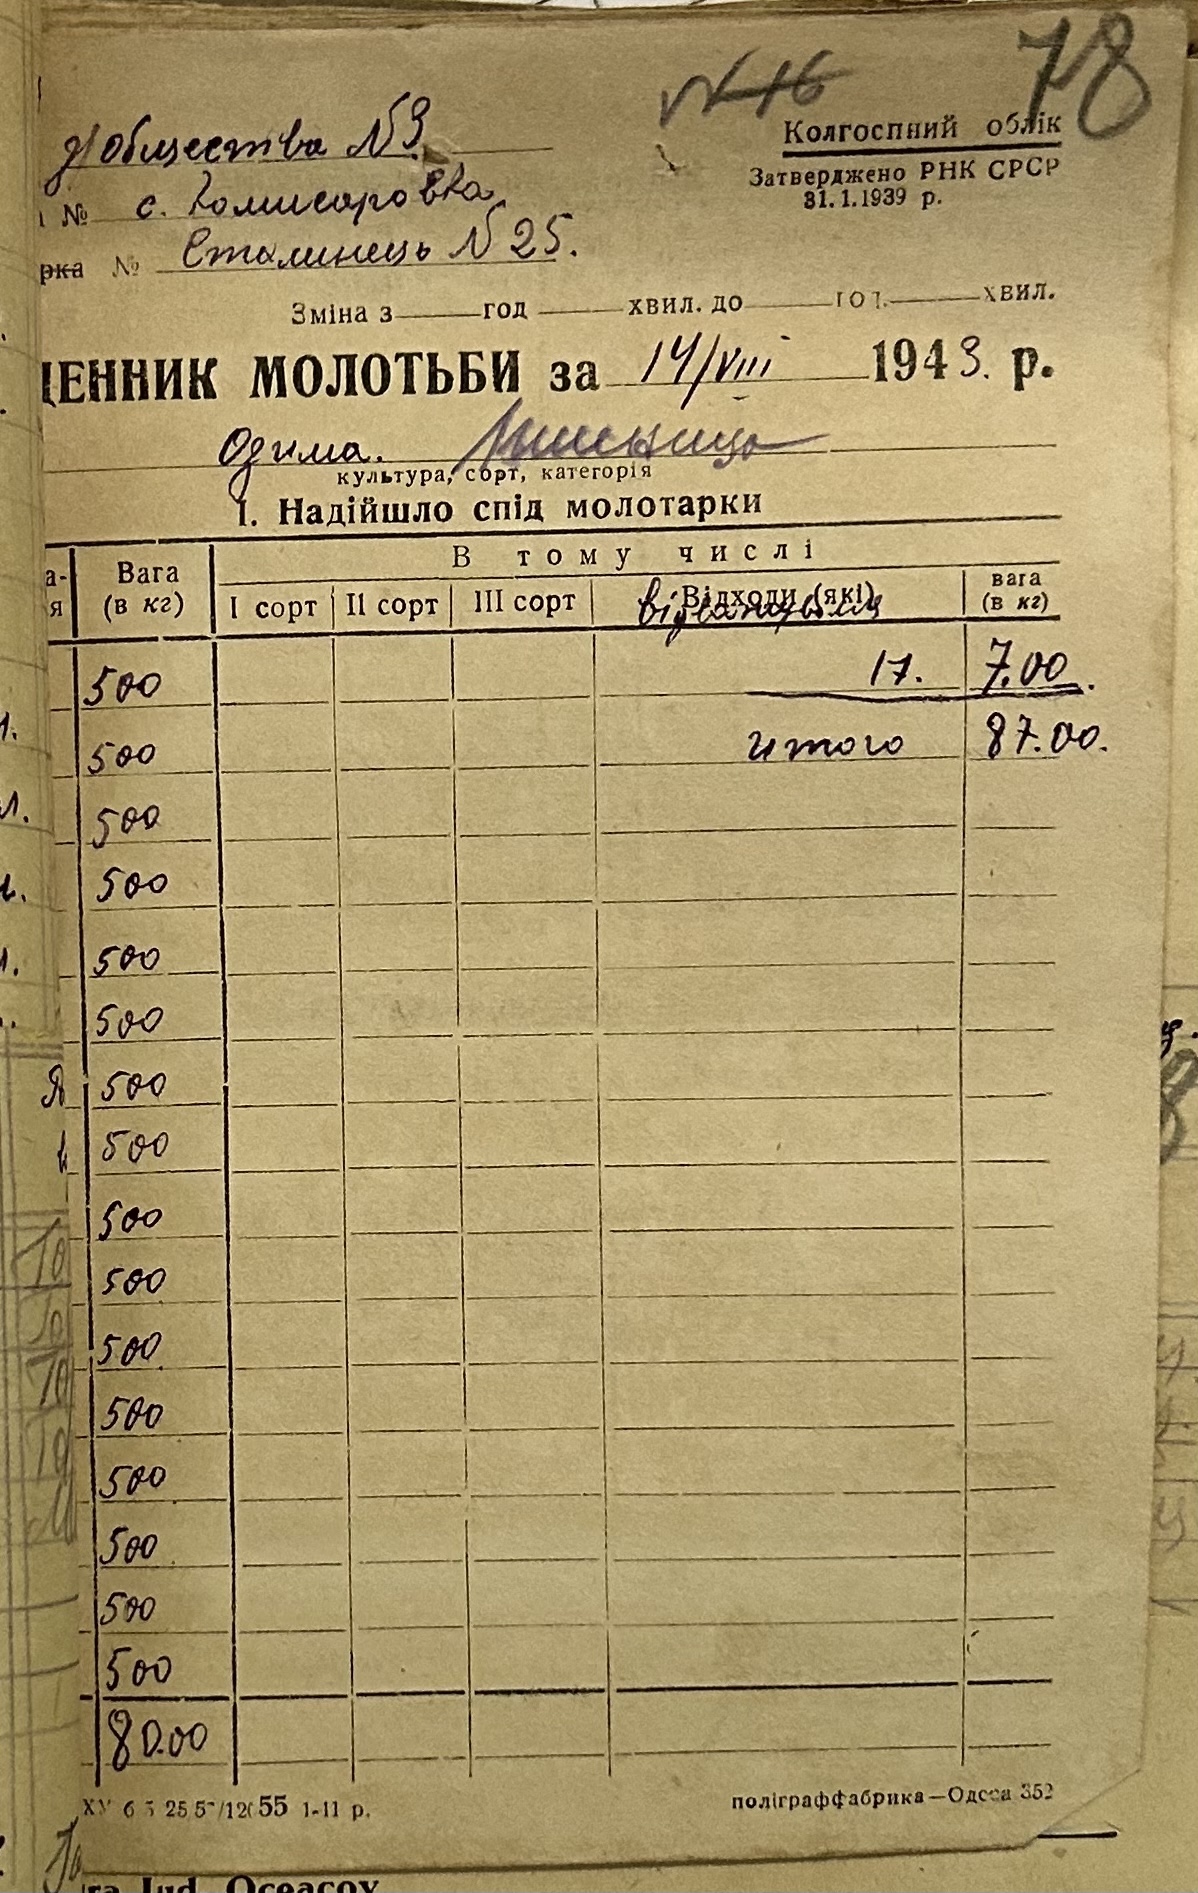 № 16
78
Общества №3
Колгоспний облік
Затверджено РНК СРСР
31.1.1939 р.
№ с. Комисоровка
рка № Сталинець №25.
Зміна з год хвил. до год. хвил.
ЦЕННИК МОЛОТЬБИ за 14/VIII 1943. р.
Озима. Пшеница
культура, сорт, категорія
І. Надійшло спід молотарки
а-
я
Вага
(в кг)
В тому числі
І сорт ІІ сорт ІІІ сорт Відходи (які) вага
(в кг)
500 17. 7.00
500 итого 87.00.
500
500
500
500
500
500
500
500
500
500
500
500
500
500
80.00
55 1-11 р.
поліграффабрика—Одеса 352
Jud. Oceacov